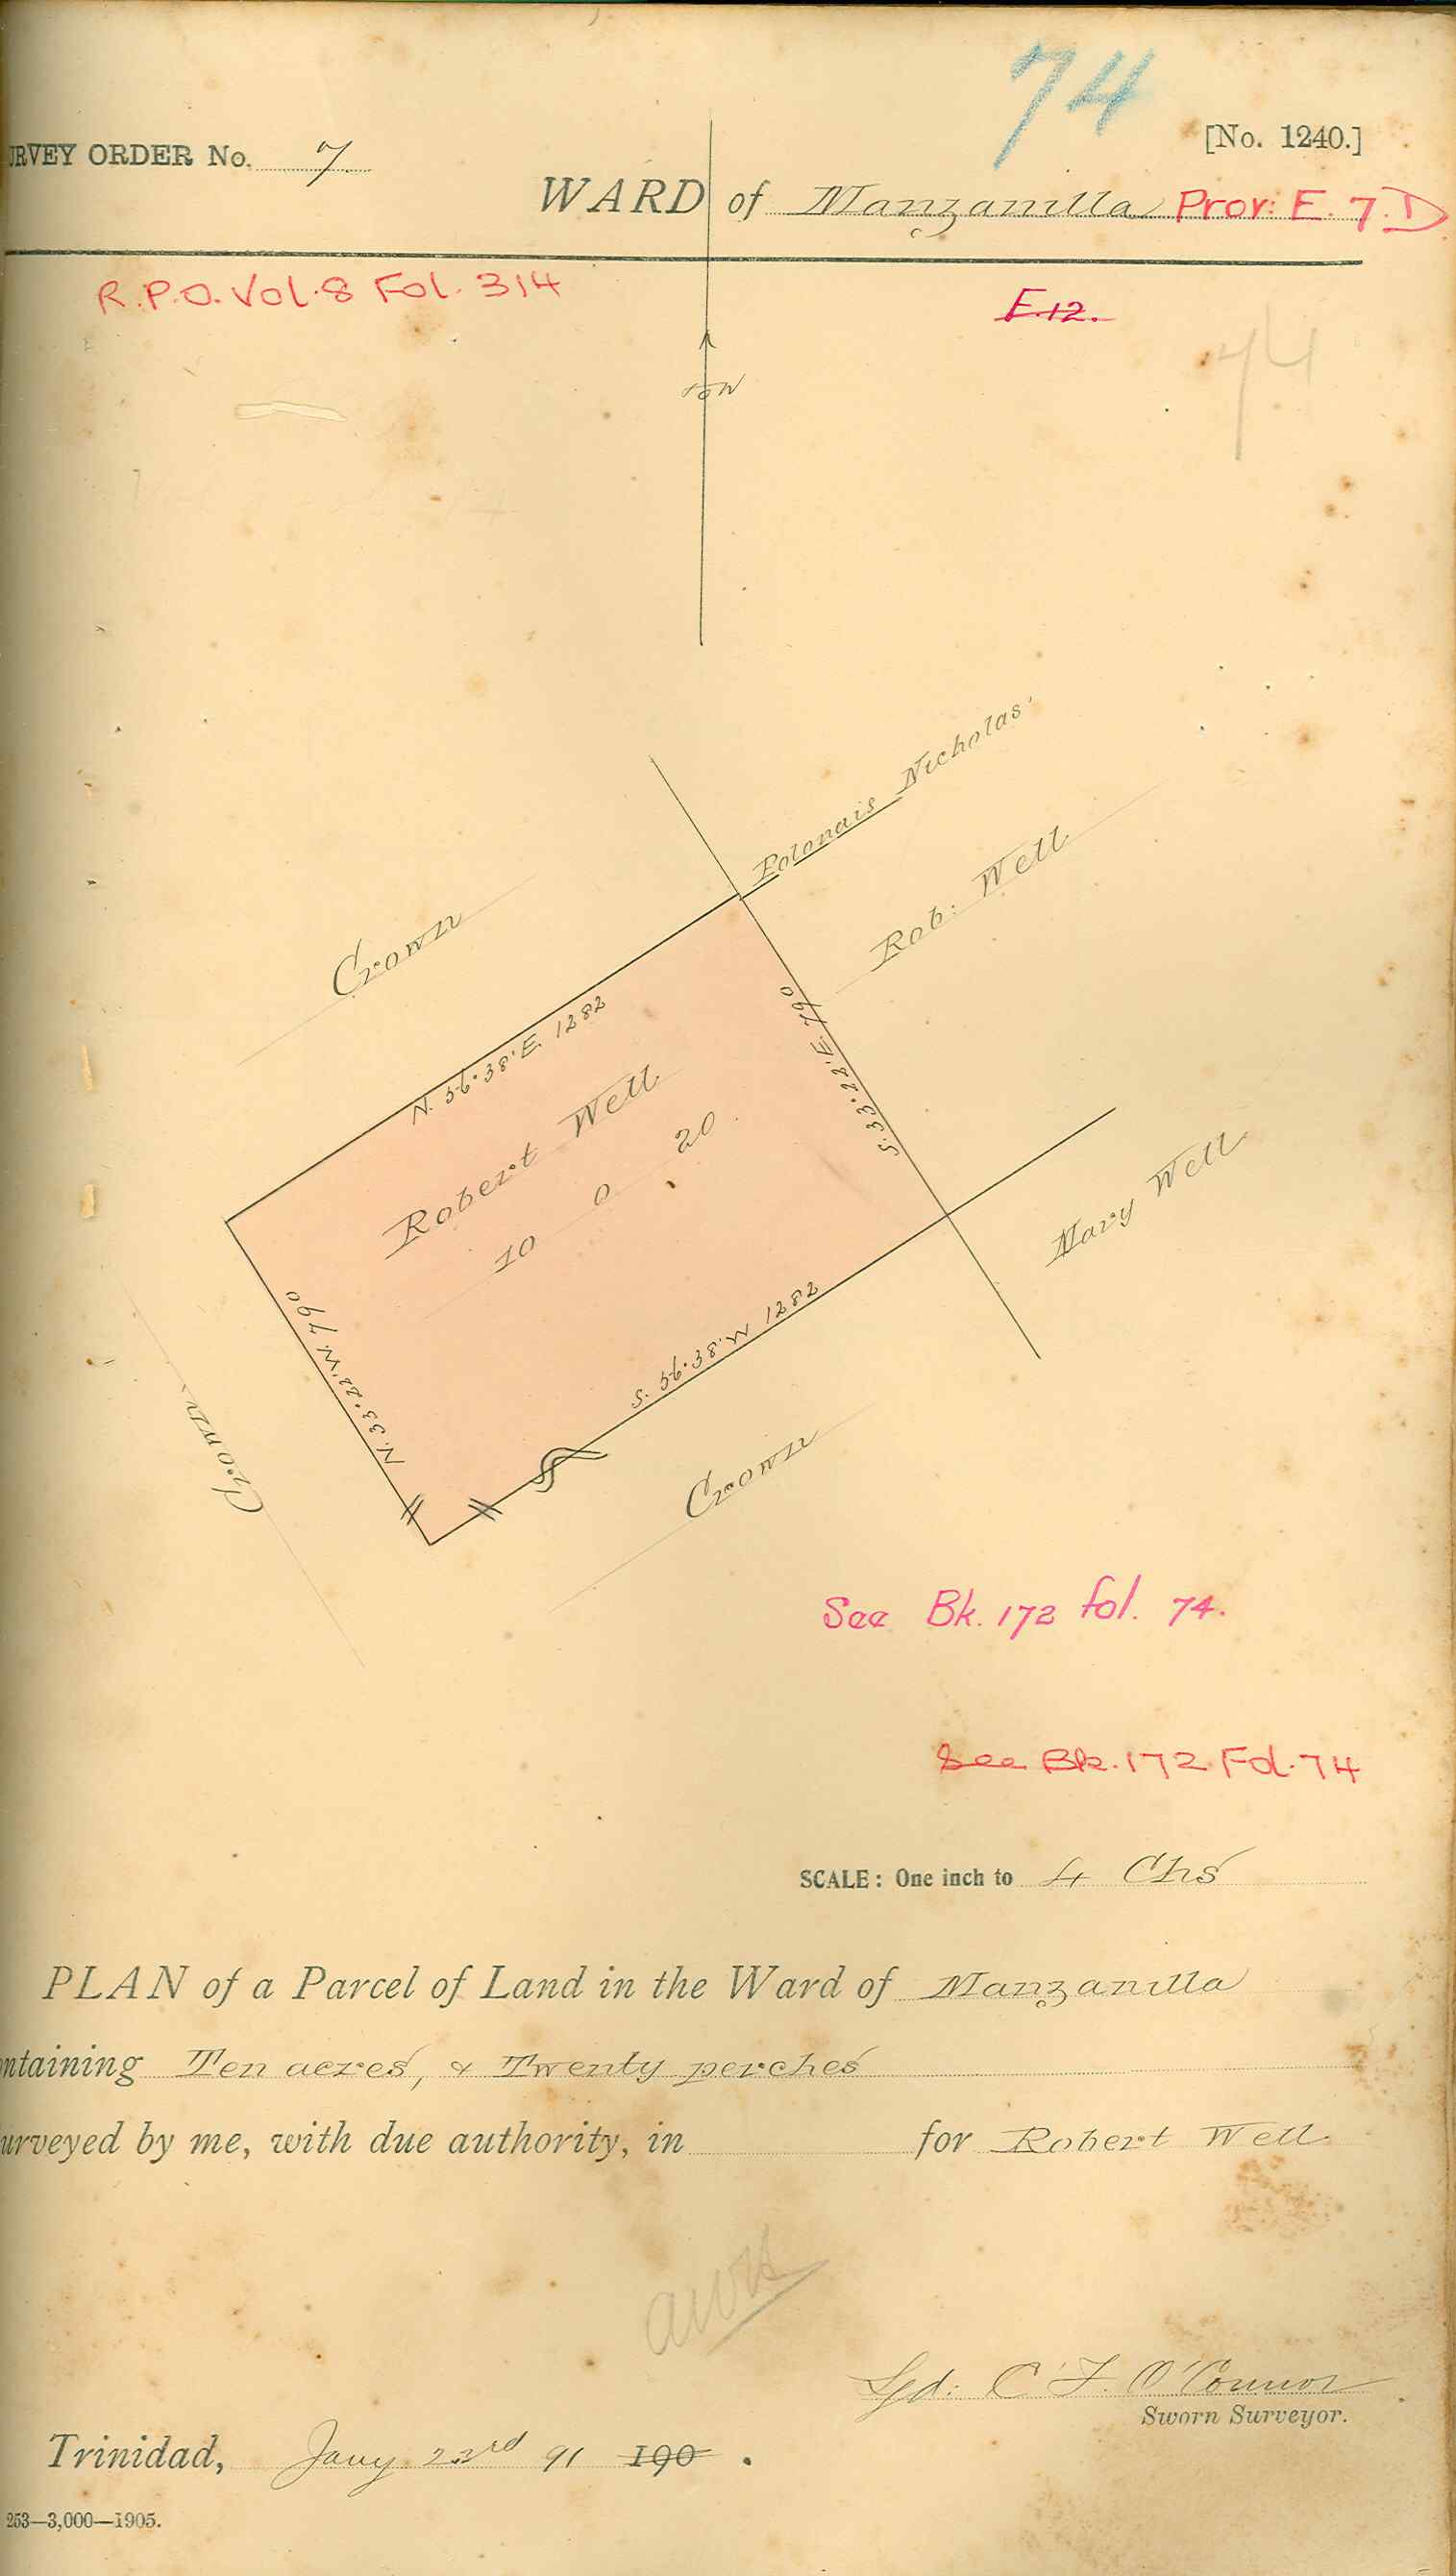 74
[No. 1240.]
URVEY ORDER No. 7.
WARD of Manzanilla Prov: E. 7. D
R.P.O. Vol. 8 Fol. 314
E.12.
74
Polonais Nicholas
Rob: Well
Crown
N. 56° 38' E. 1282
S. 33° 22' E. 790
Robert Well
10 0 20
Mary Well
N. 33° 22' W. 790
S. 56° 38' W 1282
Crown
Crown
See Bk. 172 fol. 74.
See Bk. 172 Fol. 74
SCALE: One inch to 4 Chs
PLAN of a Parcel of Land in the Ward of Manzanilla
ntaining Ten acres, & Twenty perches
urveyed by me, with due authority, in for Robert Well
Sgd: C. F. O'Connor
Sworn Surveyor.
Trinidad, Jany. 23rd 91 190 .
253—3,000—1905.